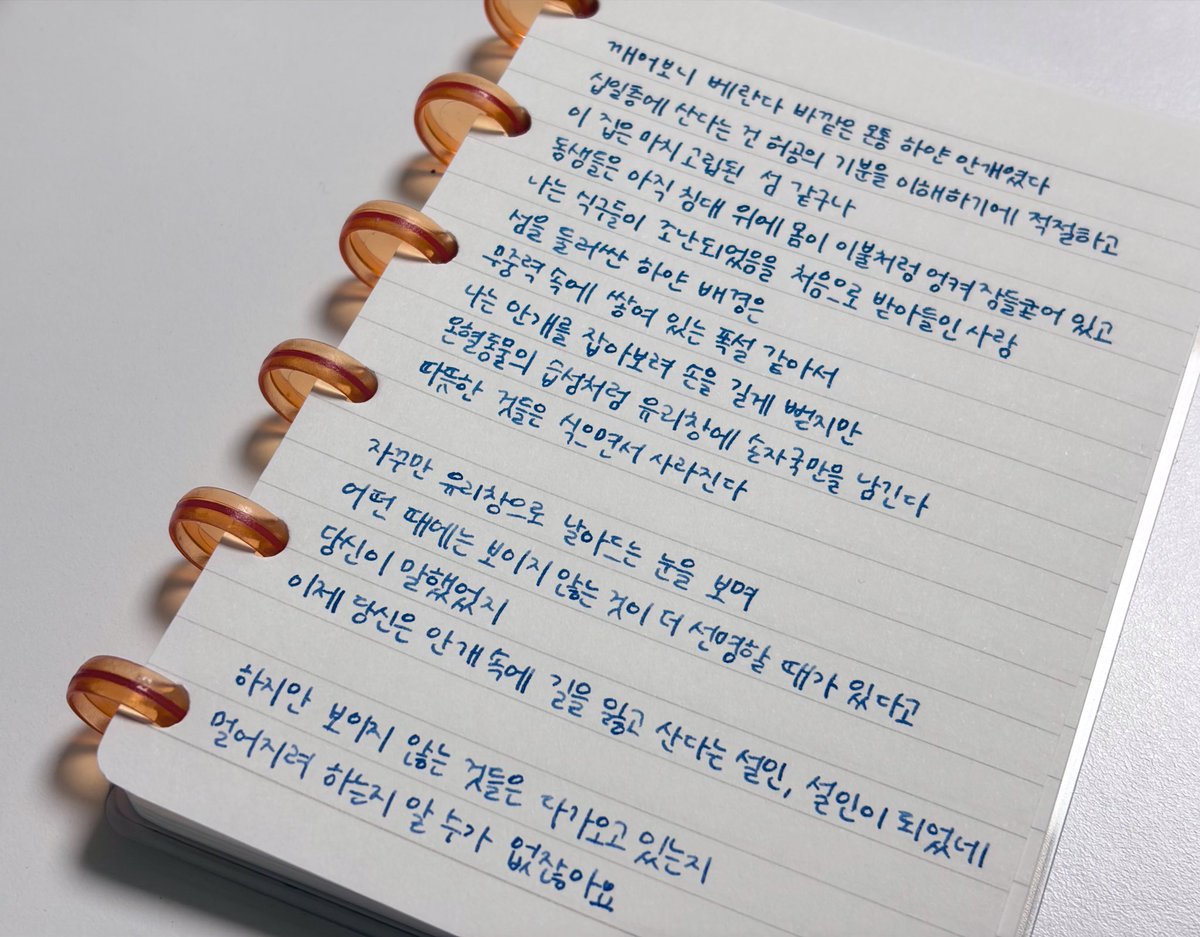 깨어보니 베란다 바깥은 온통 하얀 안개였다
십일층에 산다는 건 허공의 기분을 이해하기에 적절하고
이 집은 마치 고립된 섬 같구나
동생들은 아직 침대 위에 몸이 이불처럼 엉켜 잠들곤어 있고
나는 식구들이 조난되었음을 처음으로 받아들인 사람
섬을 둘러싼 하얀 배경은
무중력 속에 쌓여 있는 폭설 같아서
나는 안개를 잡아보려 손을 길게 뻗지만
온혈동물의 습성처럼 유리창에 손자국만을 남긴다
따뜻한 것들은 식으면서 사라진다
자꾸만 유리창으로 날아드는 눈을 보며
어떤 때에는 보이지 않는 것이 더 선명할 때가 있다고
당신이 말했었지
이제 당신은 안개 속에 길을 잃고 산다는 설인, 설인이 되었네
하지만 보이지 않는 것들은 다가오고 있는지
멀어지려 하는지 알 수가 없잖아요